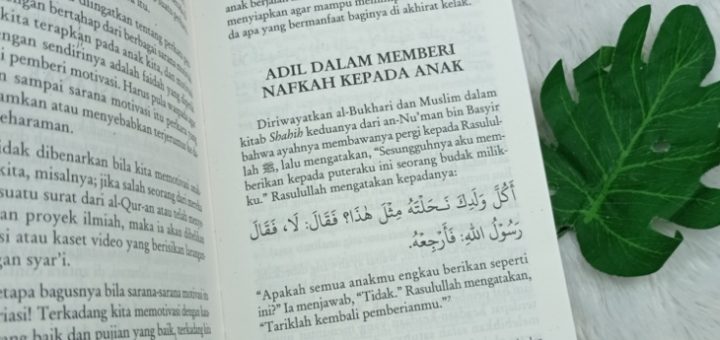 diingatkan tentang perkara
dengan bertahap dari berbagai sarana motivasi
kita terapkan pada anak kita, dan motivasi
dengan sendirinya adalah faidah yang
i pemberi motivasi. Harus pula waspada agar
n sampai sarana motivasi itu perkara yang
amkan atau menyebabkan terjerumus ke
eharaman.
idak dibenarkan bila kita memotivasi anak-
kita, misalnya; jika salah seorang dari mereka
suatu surat dari al-Qur-an atau telah
an proyek ilmiah, maka ia akan diberikan
si atau kaset video yang berisikan
gan syar'i.
etapa bagusnya bila sarana-sarana motivasi ini
riasi! Terkadang kita memotivasi dengan kata
ang baik dan pujian yang baik, terkadang kita
anak berjalan
menyiapkan agar mampu
da apa yang bermanfaat baginya di akhirat kelak.
ADIL DALAM MEMBERI
NAFKAH KEPADA ANAK
Diriwayatkan al-Bukhari dan Muslim dalam
kitab Shahih keduanya dari an-Nu'man bin Basyir
bahwa ayahnya membawanya pergi kepada Rasulul-
lah ﷺ, lalu mengatakan, "Sesungguhnya aku mem-
berikan kepada puteraku ini seorang budak milik-
ku." Rasulullah mengatakan kepadanya:
أَكُلَّ وَلَدِكَ نَحَلْتَهُ مِثْلَ هَذَا؟ فَقَالَ: لَا، فَقَالَ
رَسُوْلُ اللهِ: فَارْجِعْهُ.
"Apakah semua anakmu engkau berikan seperti
ini?" Ia menjawab, "Tidak." Rasulullah mengatakan,
"Tariklah kembali pemberianmu."⁷